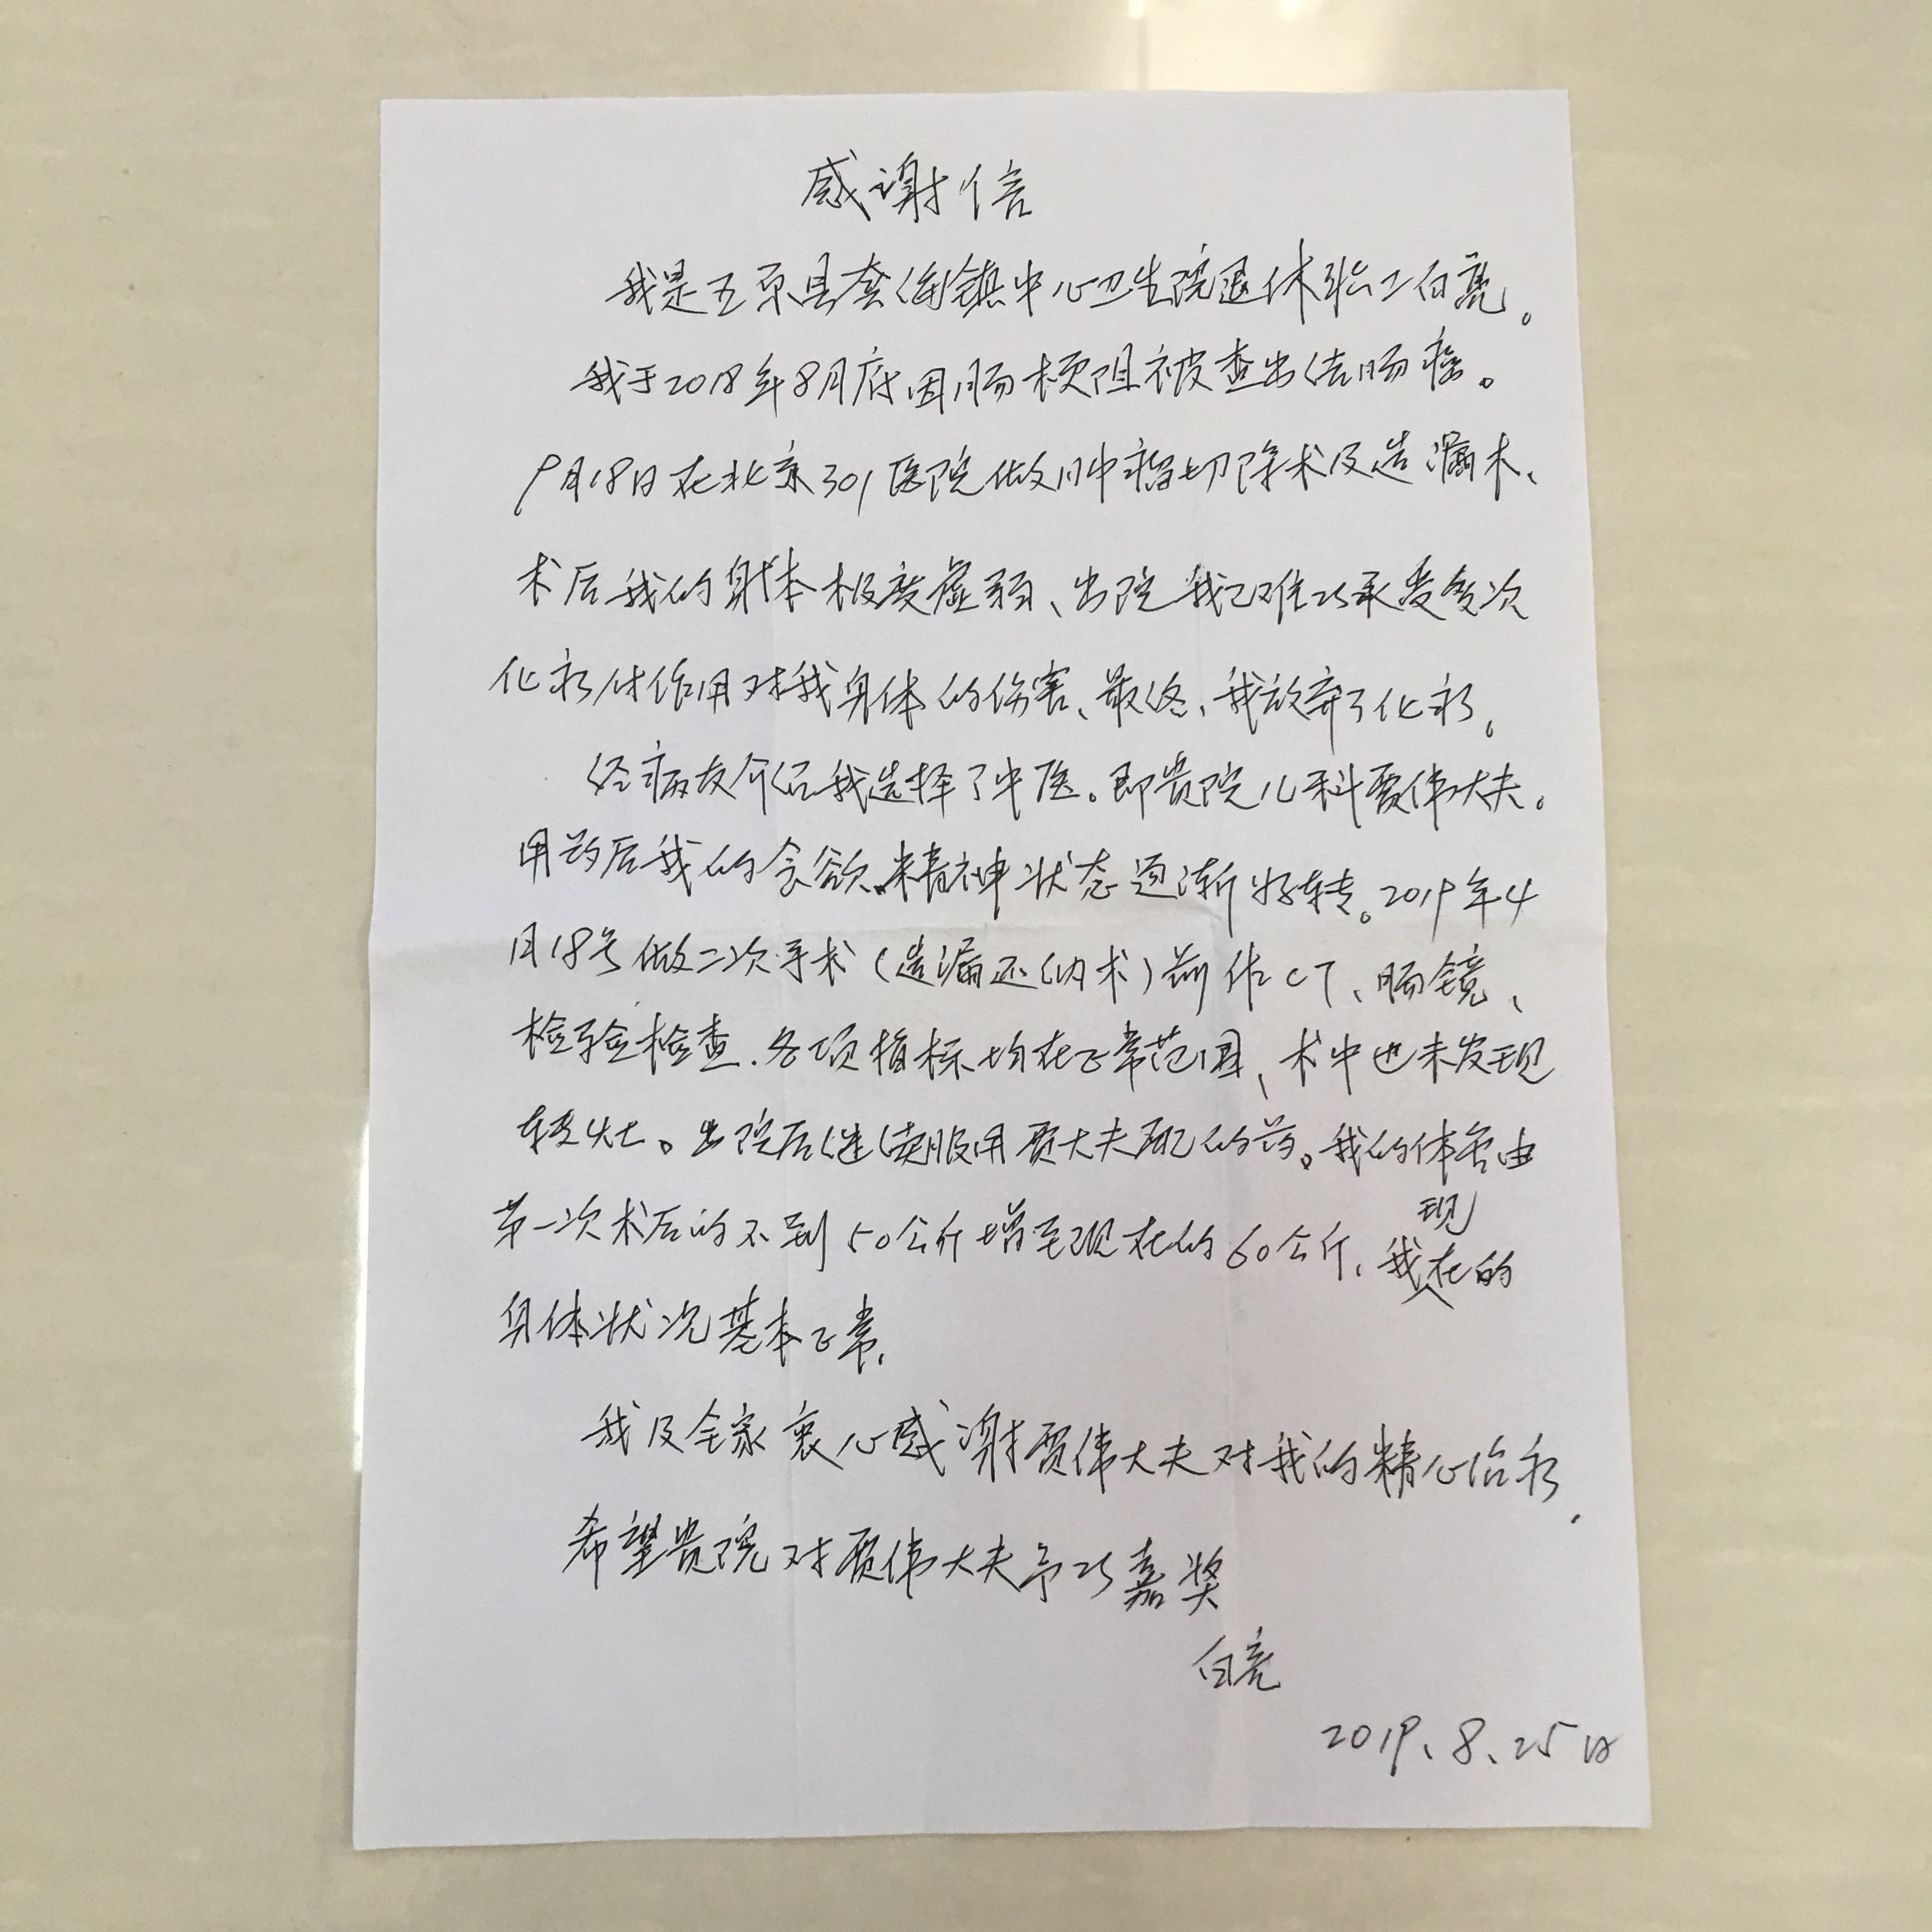 感谢信
我是五原县套海镇中心卫生院退休职工白亮。
我于2018年8月底因肠梗阻被查出结肠癌。
9月18日在北京301医院做肿瘤切除术及造漏术、
术后我的身体极度虚弱、出院我已难以承受多次
化疗付作用对我身体的伤害、最终、我放弃了化疗。
经病友介绍我选择了中医。即贵院儿科贾伟大夫。
用药后我的食欲、精神状态逐渐好转。2019年4
月18号做二次手术(造漏还纳术)前作CT、肠镜、
检验检查.各项指标均在正常范围、术中也未发现
转灶。出院后继续服用贾大夫配的药。我的体重由
第一次术后的不到50公斤增至现在的60公斤、我现在的
身体状况基本正常.
我及全家衷心感谢贾伟大夫对我的精心治疗.
希望贵院对贾伟大夫予以嘉奖
白亮
2019、8、25日